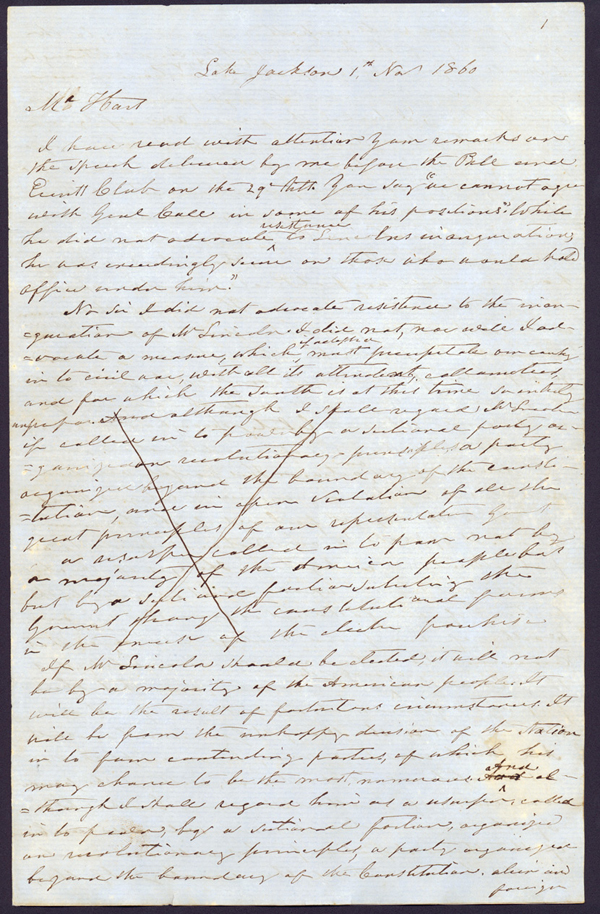 1
Lake Jackson 1st Nov 1860
Mr Hart
I have read with attention your remarks on
the speech delivered by me before the Bell and
Everett Club on the 29th Ulto. You say "we cannot agree
with Genl Call in some of his positions". While
he did not advocate resistance to Lincolns inauguration,
he was exceedingly severe on those who would hold
office under him."
No Sir I did not advocate resistance to the inau=
=guration of Mr Lincoln. I did not, nor will I ad=
=vocate a measure, which, if adopted must precipitate our country
in to civil war, with all its attendant, calamities,
and for which the South is at this time so entirely
unprepared. And although I shall regard Mr Lincoln
if called in to power by a sectional party, or=
=ganized on revolutionary principles, a party
organized beyond the boundary of the consti=
=tution, and in open violation of all the
great principles of our representative Govt
a usurper called in to power not by
a majority of the American people but
but by a sectional faction subverting the
Government through the constitutional forms
in the abuse of the elective franchise
If Mr Lincoln should be elected, it will not
be by a majority of the American people. It
will be the result of fortuitous circumstances. It
will be from the unhappy division of the Nation
in to four contending parties, of which his
may chance to be the most numerous. And al=
=though I shall regard him as a usurper, called
in to power, by a sectional faction, organized
on revolutionary principles, a party organized
beyond the boundary of the Constitution. alien and
foreign